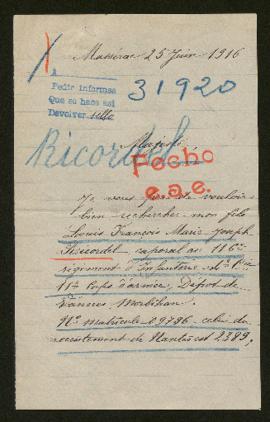 Massérac 25 Juin 1916
A
Pedir informes
Que se hace así
Devolver
31920
Ricordel
Majesté
Fecho
e.a.e.
Je vous prie de vouloir
bien rechercher mon fils
Louis François Marie Joseph
Ricordel caporal au 116e
régiment d'Infanterie
11e Corps d'armée, Dépôt de
Vannes Morbihan.
No matricule 09786 celui de
recrutement de Nantes est 2389,